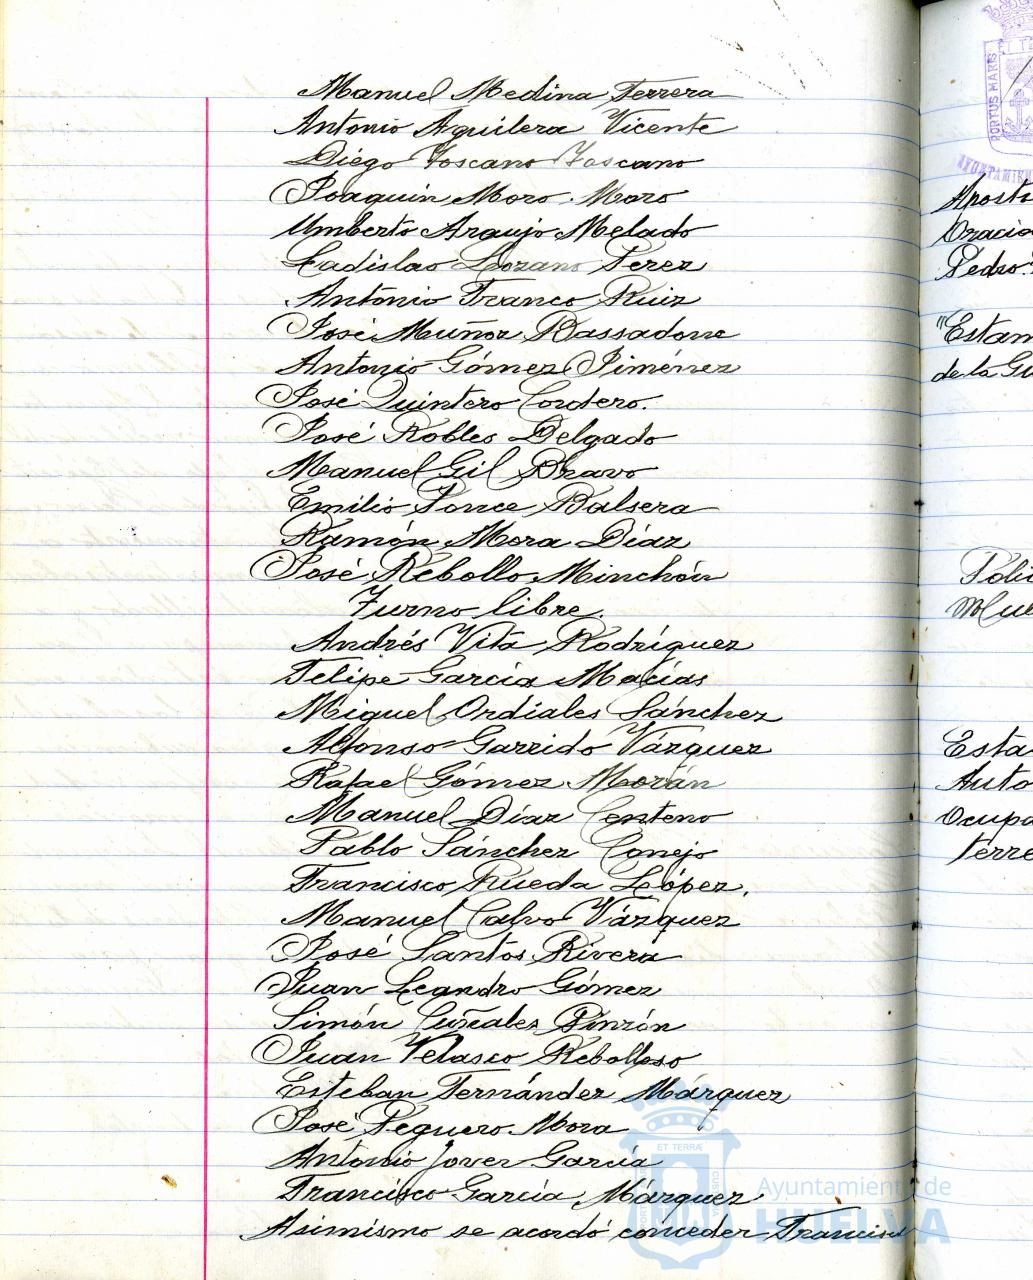 Manuel Medina Ferrera
Antonio Aguilera Vicente
Diego Toscano Toscano
Joaquin Moro Moro
Umberto Araujo Melado
Ladislao Lozano Perez
Antonio Franco Ruiz
José Muñoz Bassadone
Antonio Gómez Jiménez
José Quintero Cordero.
José Robles Delgado
Manuel Gil Bravo
Emilio Ponce Balsera
Ramón Mora Díaz
José Rebollo Minchón
Turno libre.
Andrés Vita Rodríguez
Felipe García Macías
Miguel Ordiales Sánchez
Alfonso Garrido Vázquez
Rafael Gómez Morán
Manuel Díaz Centeno
Pablo Sánchez Conejo
Francisco Rueda López.
Manuel Calvo Vázquez
José Santos Rivera
Juan Leandro Gómez
Simón Pinzón
Juan Velasco Rebolloso
Esteban Fernández Márquez
José Peguero Mora
Antonio Jover García
Francisco García Márquez
Asimismo se acordó conceder Francisco
PORTUS MARIS
AYUNTAMIEN
Pedro
"Estam
de la Gu
Esta
Auto
Ocupa
terre
ET TERRÆ
Ayuntamiento de
HUELVA